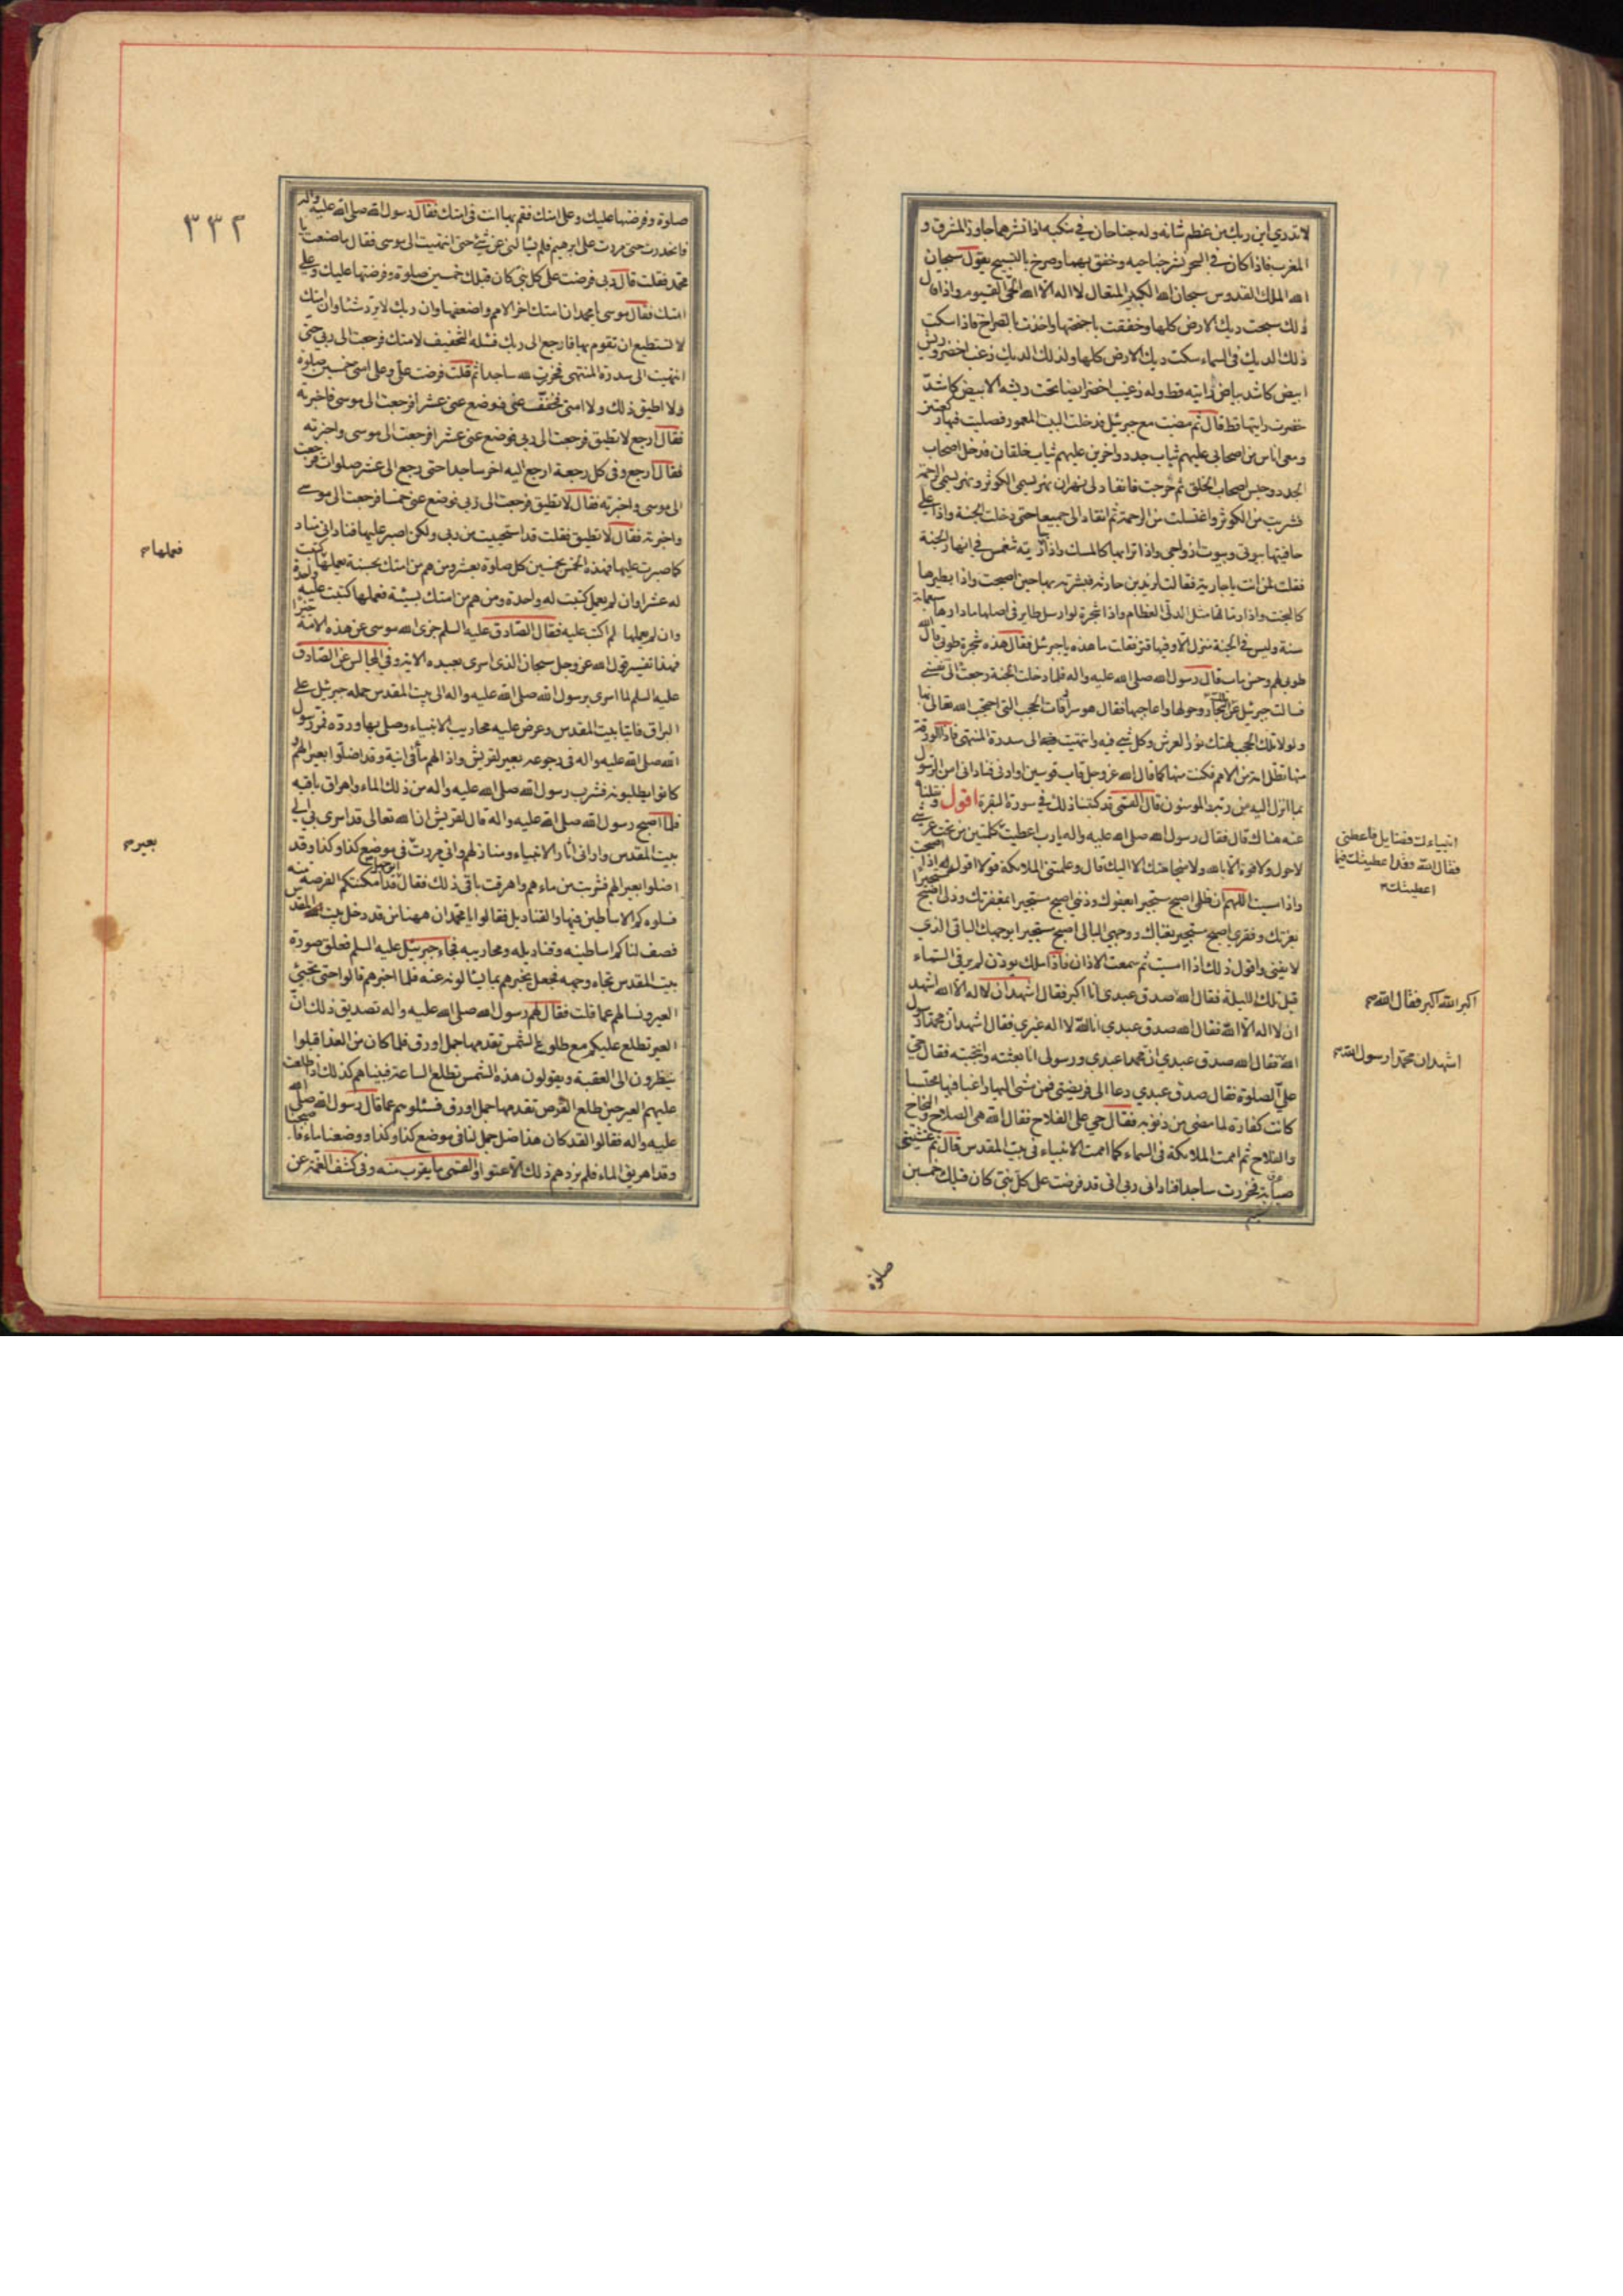 لا تدري اين ربك من عظم شانه وله جناحان في منكبه اذا نشرهما جاوز المشرق و
المغرب فاذا كان في السحر نشر جناحيه وخفق بهما وصرخ بالتسبيح يقول سبحان
الله الملك القدوس سبحان الله الكبير المتعال لا اله الا الله الحي القيوم واذا قال
ذلك سبحت ديك الارض كلها وخفقت باجنحتها واخذت بالصراخ فاذا سكت
ذلك الديك في السماء سكت ديك الارض كلها ولذلك الديك زغب اخضر وريش
ابيض كاشد بياض رايته قط وله زغب اخضر ايضا تحت ريشه الابيض كاشد
خضرت رايتها قط قال ثم مضيت مع جبرئيل فدخلت البيت المعمور فصليت فيها ركعتين
ومعي اناس من اصحابي عليهم ثياب جدد واخرين عليهم ثياب خلقان فدخل اصحاب
الجدد وحبس اصحاب الخلق ثم خرجت فانقاد لي نهران نهر يسمى الكوثر ونهر يسمى الرحمة
فشربت من الكوثر واغتسلت من الرحمة ثم انقاد الي جميعا حتى دخلت الجنة واذا على
حافيتها بيوتي وبيوت ازواجي واذا ترابها كالمسك واذا جارية تنغمس في انهار الجنة
فقلت لمن انت يا جارية فقالت لزيد بن حارثه فبشرته بها حين اصبحت واذا بطيرها
كالبخت واذا رمانها مثل الدلي العظام واذا شجرة لو ارسل طاير في اصلها ما دارها سبعمائة
سنة وليس في الجنة منزل الا وفيها قتر فقلت ما هذه يا جبرئيل فقال هذه شجرة طوبى قال الله
طوبى لهم وحسن ماب قال رسول الله صلى الله عليه واله فلما دخلت الجنة رجعت الى نفسي
فسالت جبرئيل عن تلك البحار وهولها واعاجيبها فقال هو سرادقات الحجب التي احتجب الله تعالى بها
ولولا تلك الحجب لهتك نور العرش وكل شيء فيه وانتهيت الى سدرة المنتهى فاذا الورقة
منها تظل امة من الامم فكنت منها كما قال الله عز وجل قاب قوسين او ادنى فناداني امن الرسول
بما انزل اليه من ربه والمومنون قال القمي قد كتبنا ذلك في سورة البقرة اقول ونقلنا
عنه هناك قال فقال رسول الله صلى الله عليه واله يا رب اعطيت
انبياءك فضايل فاعطني
فقال الله وقد اعطيتك فيما
اعطيتك
كلمتين من تحت عرشي
لا حول ولا قوة الا بالله ولا منجا منك الا اليك قال وعلمتني الملائكة قولا اقول اذا اصبحت
واذا امسيت اللهم ان ظلمي اصبح مستجيرا بعفوك وذنبي اصبح مستجيرا بمغفرتك وذلي اصبح مستجيرا
بعزتك وفقري اصبح مستجيرا بغناك ووجهي البالي اصبح مستجيرا بوجهك الباقي الذي
لا يفنى واقول ذلك اذا امسيت ثم سمعت الاذان فاذا ملك يوذن لم ير في السماء
قبل تلك الليلة فقال
الله اكبر الله اكبر فقال الله
صدق عبدي انا اكبر فقال اشهد ان لا اله الا الله اشهد
ان لا اله الا الله فقال الله صدق عبدي انا الله لا اله غيري فقال اشهد ان محمدا رسول
الله
اشهد ان محمدا رسول الله
فقال الله صدق عبدي ان محمدا عبدي ورسولي انا بعثته وانتجبته فقال حي
على الصلوة فقال صدق عبدي دعا الى فريضتي فمن مشى اليها راغبا فيها محتسبا
كانت كفارة لما مضى من ذنوبه فقال حي على الفلاح فقال الله هي الصلاح والنجاح
والفلاح ثم اممت الملائكة في السماء كما اممت الانبياء في بيت المقدس قال ثم غشيتني
صبابة فخررت ساجدا فناداني ربي اني قد فرضت على كل نبي كان قبلك خمسين
صلوة
٣٣٢
صلوة وفرضتها عليك وعلى امتك فقم بها انت في امتك فقال رسول الله صلى الله عليه واله
فانحدرت حتى مررت على ابرهيم فلم يسالني عن شيء حتى انتهيت الى موسى فقال ما صنعت يا
محمد فقلت قال ربي فرضت على كل نبي كان قبلك خمسين صلوة وفرضتها عليك وعلى
امتك فقال موسى يا محمد ان امتك اخر الامم واضعفها وان ربك لا يرد شيئا وان امتك
لا تستطيع ان تقوم بها فارجع الى ربك فسئله التخفيف لامتك فرجعت الى ربي حتى
انتهيت الى سدرة المنتهى فخررت لله ساجدا ثم قلت فرضت علي وعلى امتي خمسين صلوة
ولا اطيق ذلك ولا امتي فخفف عني فوضع عني عشرا فرجعت الى موسى فاخبرته
فقال ارجع لا تطيق فرجعت الى ربي فوضع عني عشرا فرجعت الى موسى واخبرته
فقال ارجع وفي كل رجعة ارجع اليه اخر ساجدا حتى رجع الى عشر صلوات فرجعت
الى موسى واخبرته فقال لا تطيق فرجعت الى ربي فوضع عني خمسا فرجعت الى موسى
واخبرته فقال لا تطيق فقلت قد استحييت من ربي ولكن اصبر عليها فناداني مناد
كما صبرت عليها فهذه الخمس بخمسين كل صلوة بعشر ومن هم من امتك بحسنة يعملها
فعملها
كتبت
له عشرا وان لم يعمل كتبت له واحدة ومن هم من امتك بسيئة فعملها كتبت عليه واحدة
وان لم يعملها لم اكتب عليه فقال الصادق عليه السلم جزى الله موسى عن هذه الامة خيرا
فهذا تفسير قول الله عز وجل سبحان الذي اسرى بعبده الاية وفي المجالس عن الصادق
عليه السلم لما اسرى برسول الله صلى الله عليه واله الى بيت المقدس حمله جبرئيل على
البراق فاتيا بيت المقدس وعرض عليه محاريب الانبياء وصلى بها ورده فمر رسول
الله صلى الله عليه واله في رجوعه بعير لقريش واذا لهم ماء في انية وقد اضلوا بعيرا لهم و
كانوا يطلبونه فشرب رسول الله صلى الله عليه واله من ذلك الماء واهراق باقيه
فلما اصبح رسول الله صلى الله عليه واله قال لقريش ان الله تعالى قد اسرى بي الى
بيت المقدس واراني اثار الانبياء ومنازلهم واني مررت
بعير
في موضع كذا وكذا وقد
اضلوا بعيرا لهم فشربت من ماءهم واهرقت باقي ذلك فقال ابو جهل قد امكنتكم الفرصة منه
فسلوه كم الاساطين فيها والقناديل فقالوا يا محمد ان ههنا من قد دخل بيت المقدس
فصف لنا كم اساطينه وقناديله ومحاريبه فجاء جبرئيل عليه السلم فعلق صورة
بيت المقدس تجاه وجهه فجعل يخبرهم بما يسالونه عنه فلما اخبرهم قالوا حتى تجيء
العير ونسالهم عما قلت فقال لهم رسول الله صلى الله عليه واله تصديق ذلك ان
العير تطلع عليكم مع طلوع الشمس تقدمها جمل اورق فلما كان من الغد اقبلوا
ينظرون الى العقبة ويقولون هذه الشمس تطلع الساعة فبيناهم كذلك اذ طلعت
عليهم العير حين طلع القرص تقدمها جمل اورق فسئلوهم عما قال رسول الله صلى الله
عليه واله فقالوا لقد كان هذا ضل جمل لنا في موضع كذا وكذا ووضعنا ماء فاصبحنا
وقد اهريق الماء فلم يزدهم ذلك الا عتوا والقمي ما يقرب منه وفي كشف الغمة عن